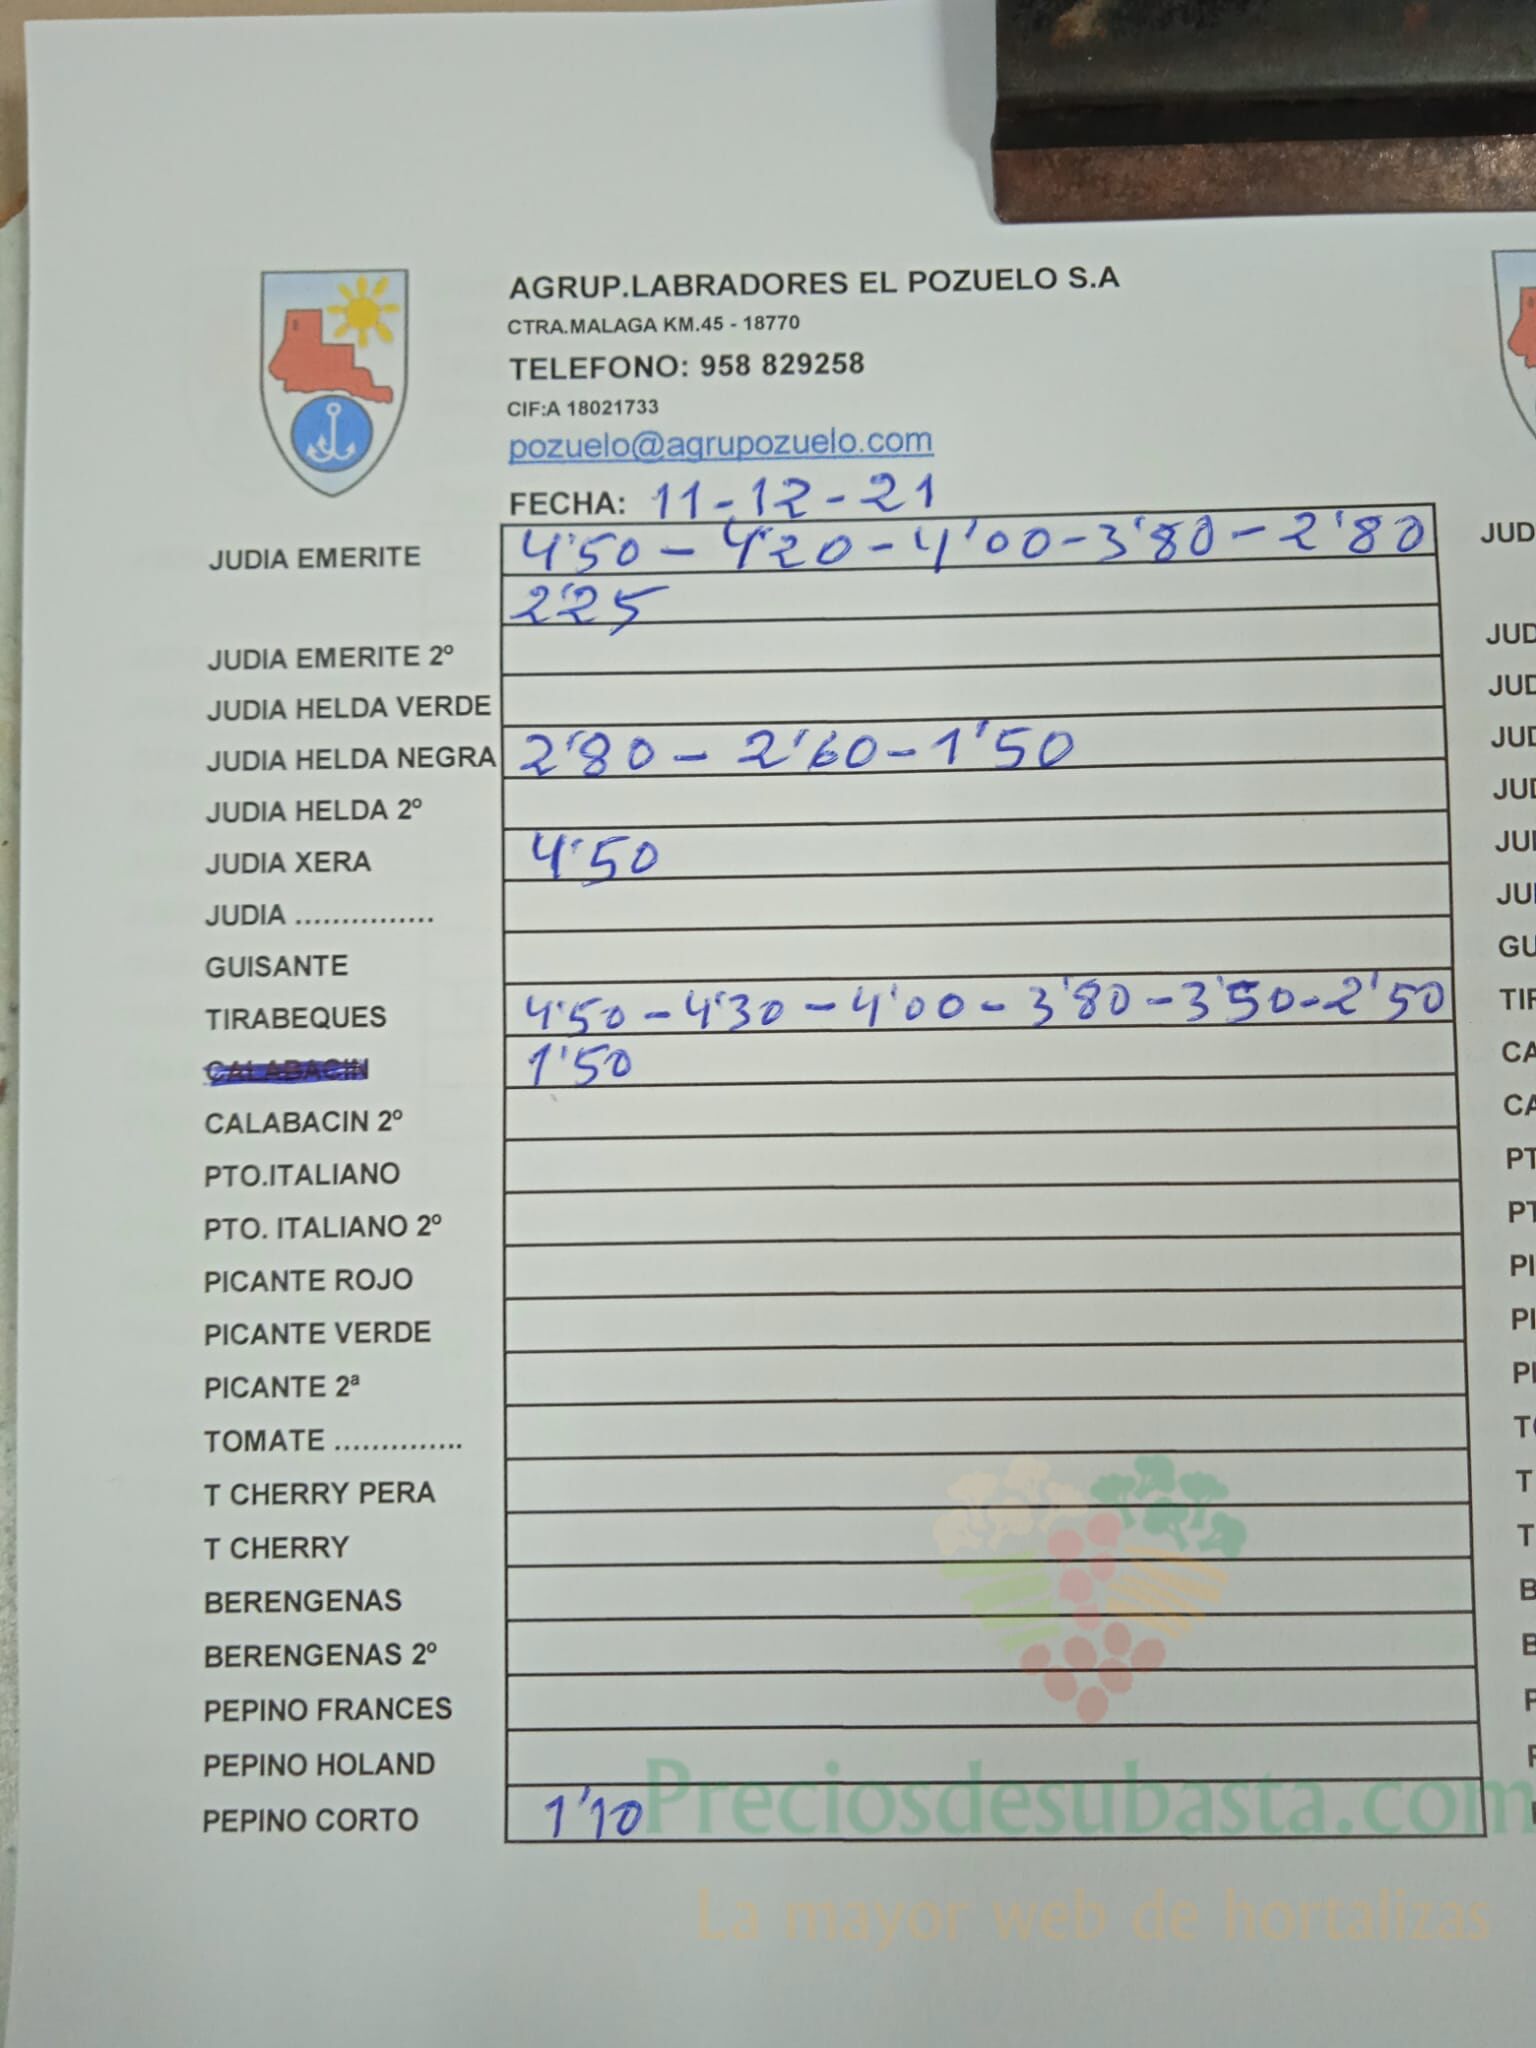 AGRUP.LABRADORES EL POZUELO S.A
CTRA.MALAGA KM.45 - 18770
TELEFONO: 958 829258
CIF:A 18021733
pozuelo@agrupozuelo.com
FECHA: 11-12-21
JUDIA EMERITE 4'50 - 4'20 - 4'00 - 3'80 - 2'80 JUD
2'25
JUDIA EMERITE 2º JUD
JUDIA HELDA VERDE JUD
JUDIA HELDA NEGRA 2'80 - 2'60 - 1'50 JUD
JUDIA HELDA 2º JUD
JUDIA XERA 4'50 JUI
JUDIA ............... JUI
GUISANTE GU
TIRABEQUES 4'50 - 4'30 - 4'00 - 3'80 - 3'50 - 2'50 TIR
CALABACIN 1'50 CA
CALABACIN 2º CA
PTO.ITALIANO PT
PTO. ITALIANO 2º PT
PICANTE ROJO PI
PICANTE VERDE PI
PICANTE 2ª PI
TOMATE .............. TO
T CHERRY PERA T
T CHERRY T
BERENGENAS B
BERENGENAS 2º B
PEPINO FRANCES P
PEPINO HOLAND P
PEPINO CORTO 1'10
Preciosdesubasta.com
La mayor web de hortalizas